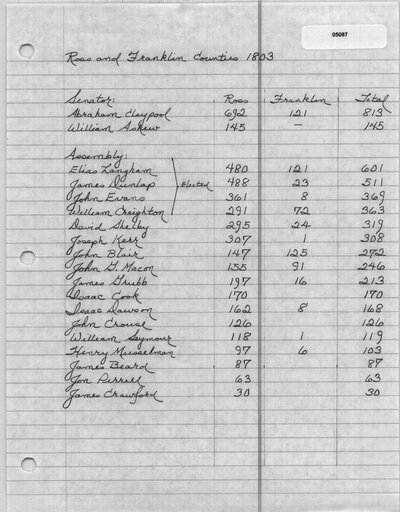 05087
Ross and Franklin Counties 1803
Senator: Ross Franklin Total
Abraham Claypool 692 121 813
William Askew 145 — 145
Assembly:
Elias Langham 480 121 601
James Dunlap 488 23 511
Elected
John Evans 361 8 369
William Creighton 291 72 363
David Shelby 295 24 319
Joseph Kerr 307 1 308
John Blair 147 125 272
John G. Macon 155 91 246
James Grubb 197 16 213
Isaac Cook 170 170
Isaac Dawson 162 8 168
John Crouse 126 126
William Seymour 118 1 119
Henry Musselman 97 6 103
James Beard 87 87
Jon Perrill 63 63
James Crawford 30 30